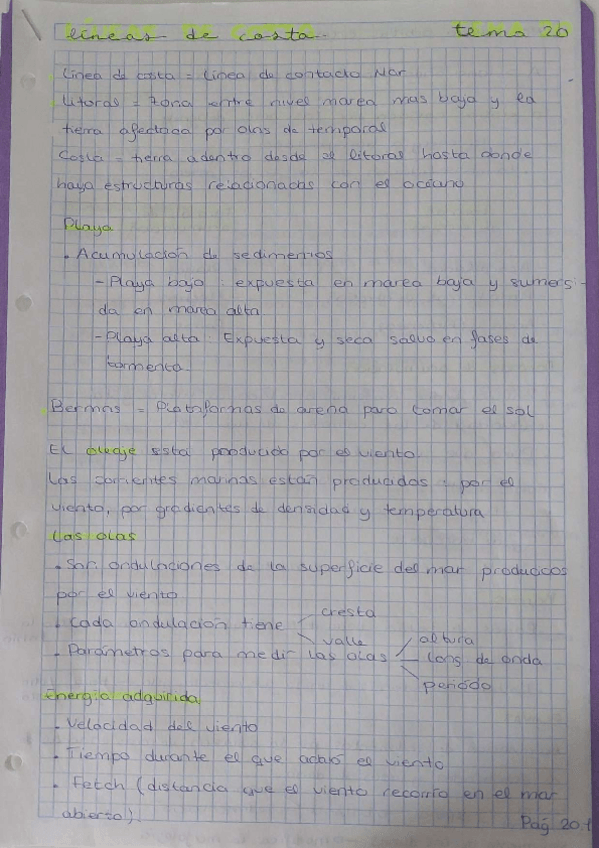 líneas de costa. tema 20
Línea de costa = Línea de contacto Mar
Litoral = zona entre nivel marea mas baja y la
tierra afectada por olas de temporal
Costa = tierra adentro desde el litoral hasta donde
haya estructuras relacionadas con el océano
Playa
• Acumulación de sedimentos
- Playa baja : expuesta en marea baja y sumergi-
da en marea alta
- Playa alta : Expuesta y seca salvo en fases de
tormenta
Bermas = Plataformas de arena para tomar el sol
El oleaje está producido por el viento.
Las corrientes marinas están producidos : por el
viento, por gradientes de densidad y temperatura
Las olas
• Son ondulaciones de la superficie del mar producidos
por el viento
• Cada ondulación tiene cresta
valle
• Parámetros para medir las olas altura
long de onda
periódo
Energía adquirida
• Velocidad del viento
• Tiempo durante el que actuó el viento
• Fetch (distancia que el viento recorrió en el mar
abierto).
Pág 20.1